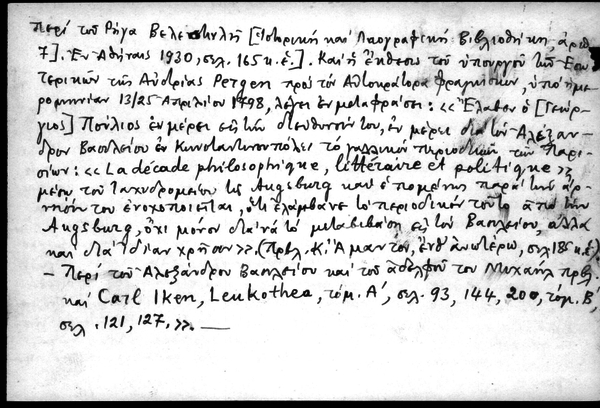 Περί τοῦ Ρήγα Βελεστινλῆ [Ἱστορική καί Λαογραφική Βιβλιοθήκη, ἀριθ.
7]. Ἐν Ἀθήναις 1930, σελ. 165 κ. ἑ.]. Καί ἡ ἔκθεσις τοῦ ὑπουργοῦ τῶν Ἐσω
τερικῶν τῆς Αὐστρίας Pergen πρός τόν Αὐτοκράτορα Φραγκῖσκον, ὑπό ἡμε
ρομηνίαν 13/25 Ἀπριλίου 1798, λέγει ἐν μεταφράσει: << Ἔλαβεν ὁ [Γεώρ-
γιος] Πούλιος ἐν μέρει εἰς τήν διεύθυνσίν του, ἐν μέρει διά τόν Ἀλέξαν-
δρον Βασιλείου ἐν Κωνσταντινουπόλει τό γαλλικόν περιοδικόν τῶν Παρι-
σίων: << La décade philosophique, littéraire et politique >>
μέσου τοῦ Ταχυδρομείου τῆς Augsburg καί ἑπομένως παρά τήν ἄρ-
νησίν του ἐνοχοποιεῖται, ὅτι ἐλάμβανε τό περιοδικόν τοῦτο ἀπό τήν
Augsburg, ὄχι μόνον διά νά τό μεταβιβάσῃ εἰς τόν Βασιλείου, ἀλλά
καί διά ἰδίαν χρῆσιν >>. (Πρβλ. Κ. Ἀμάντου, ἔνθ' ἀνωτέρω, σελ. 186 κ. ἑ.)
– Περί τοῦ Ἀλεξάνδρου Βασιλείου καί τοῦ ἀδελφοῦ του Μιχαήλ πρβλ.
καί Carl Iken, Leukothea, τόμ. Α', σελ. 93, 144, 200, τόμ. Β',
σελ. 121, 127. >>. —